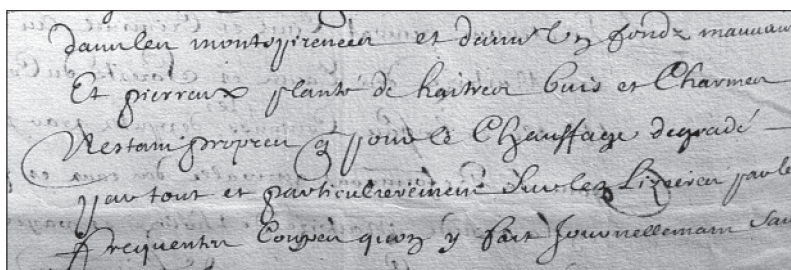 dans les montspirenees et dans un fondz mauvais
Et pierreux plante de haitres buis et Charmes
Nestans propres q pour le Chauffage degradé
par tout et particulierement sur les Lizieres par le
frequentes Coupes quon y fait Journellemant